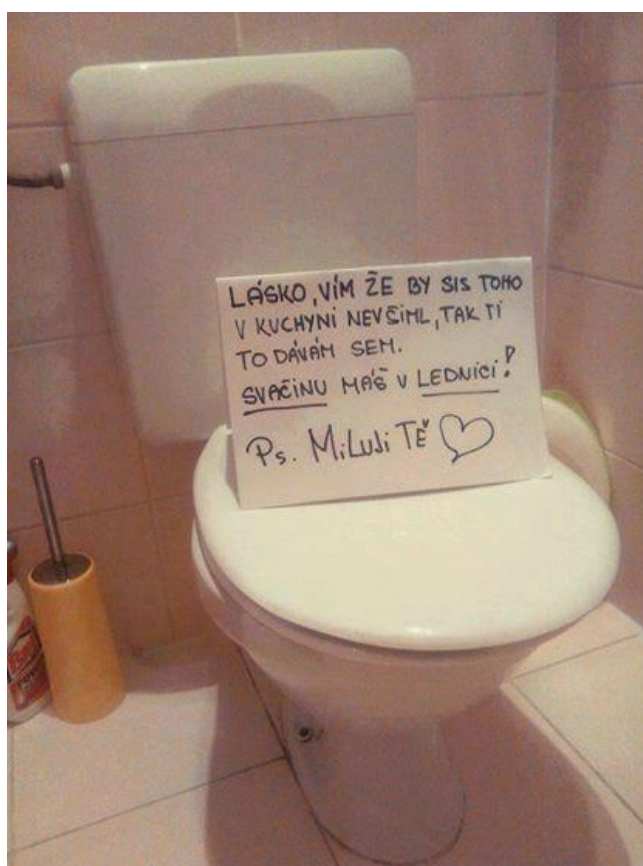 LÁSKO, VÍM ŽE BY SIS TOHO
V KUCHYNI NEVŠIML, TAK TI
TO DÁVÁM SEM.
SVAČINU MÁŠ V LEDNICI!
Ps. MiLUJi TĚ ♡